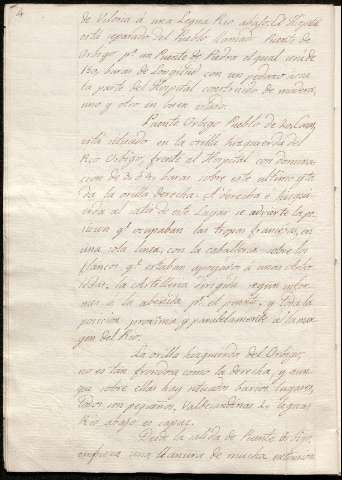 4
de Viloria á una Legua Rio abajo. El Hospital
está separado del Pueblo llamado Puente de
Orbigo pr. un Puente de Piedra el qual será de
150 baras de Longitud con un pedazo ácia
la parte del Hospital construido de madera,
uno y otro en buen estado.
Puente Orbigo Pueblo de 40 Casas,
está situado en la orilla izquierda del
Rio Orbigo, frente al Hospital con domina-
cion de 3 ó 4 baras sobre este ultimo y to-
da la orilla derecha. A derecha é Izquier-
a la salida de este Lugar se advierte la po-
sicion qe. ocupaban las tropas francesas, en
una sola linea, con la caballeria sobre los
flancos, qe. estaban apoyados á unas
la Artilleria dirigida segun infor-
mes á la abenida pr. el puente, y toda la
posicion proxima y paralelamente á la mar-
gen del Rio.
La orilla Izquierda del Orbigo,
no es tan frondosa como la derecha, y aun-
que sobre ella hay situados barios lugares,
todos son pequeños, Valdesandinas 2 leguas
Rio abajo es capaz.
Desde la salida de Puente de Orbigo
empieza una llanura de mucha extension